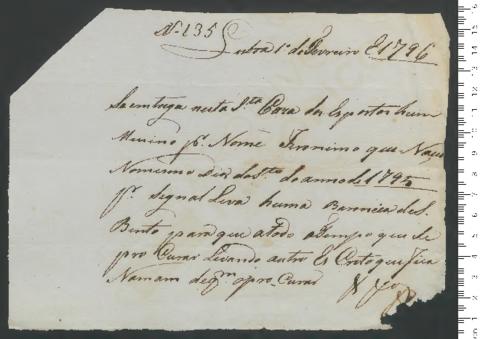 N. 135
Lisboa 1º de Fevereiro de 1796
Se entrega nesta S.ta Caza dos Expostos hum
Menino p.r Nome Jeronimo que Naçeu
No mesmo dia do anno de 1796
p.r segnal Leva huma de S.
Bento para que a todo o tempo que se
pro Curar Levando outro Es Crito que fica
Na mam de q.m o pro Curar